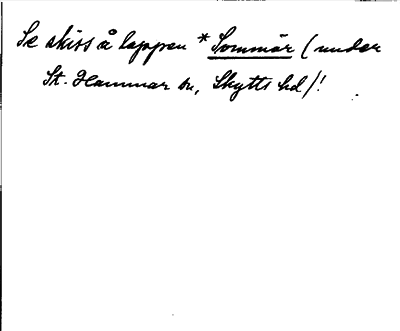 Se skiss å lappen * Sommär (under
St. Hammar sn, Skytts hd)!